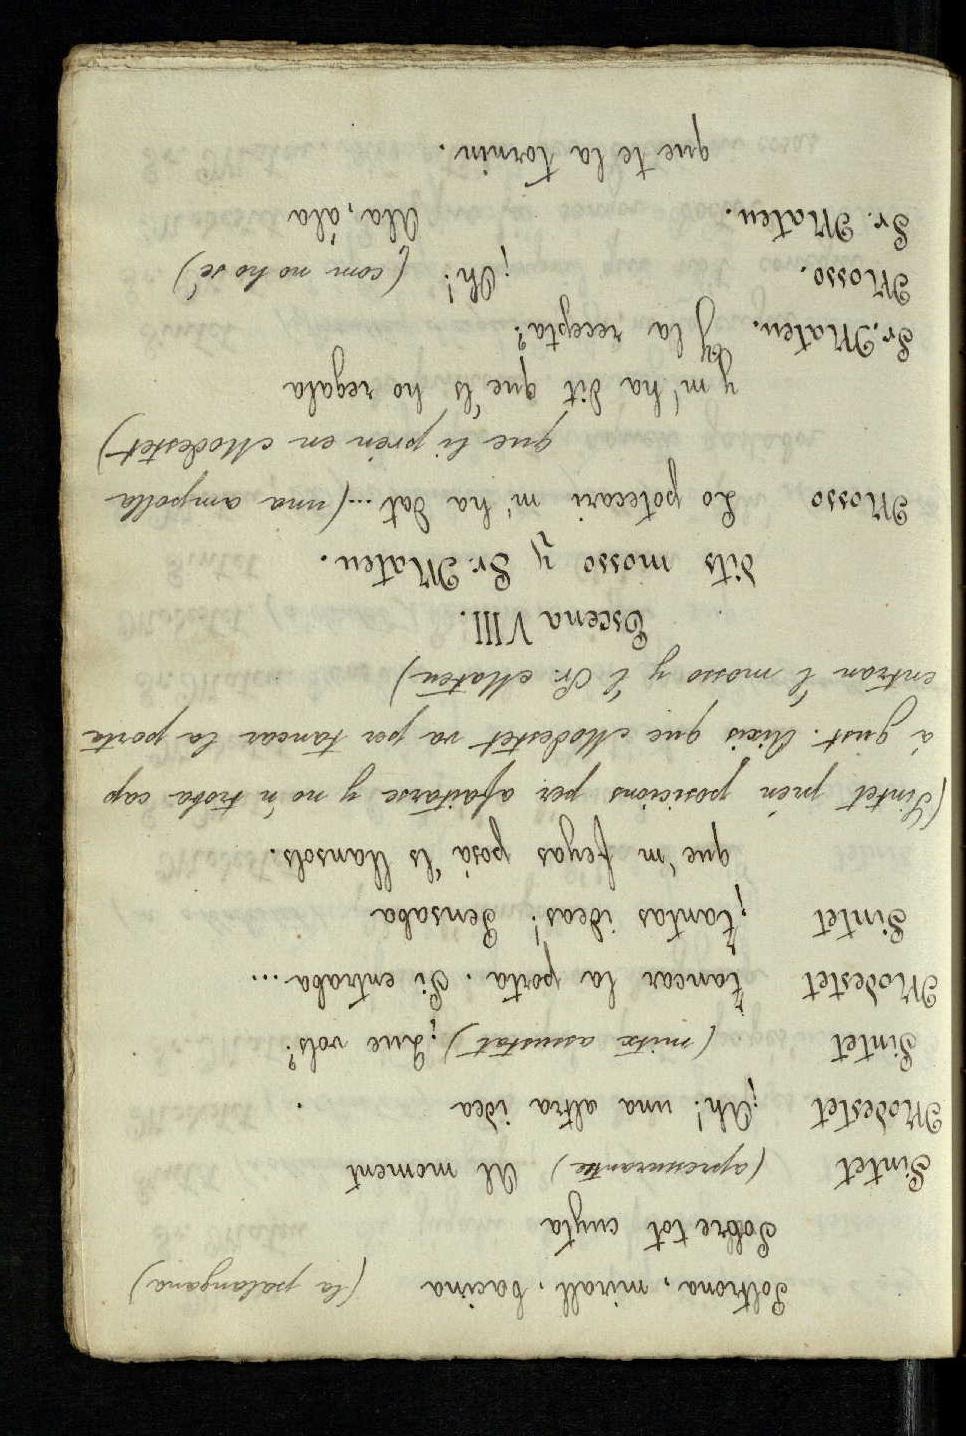 Poltrona, mirall, bacina (la palangana)
Sobre tot cuyta
Sintet (apressurantse) Al moment
Modestet ¡Ah! una altra idea
Sintet (mitx assustat) ¿Que vols?
Modestet Tancar la porta. Si entraba....
Sintet ¡Tantas ideas! Pensaba
que 'm feyas posá 'ls llansols.
(Sintet prén posicions per afaitarse y no 'n troba cap
á gust. Aixis que Modestet va per tancar la porta
entran 'l mosso y 'l Sr. Mateu)
Escena VIII.
dits mosso y Sr. Mateu.
Mosso Lo potecari m' ha dat...(una ampolla
que li prén en Modestet)
y m' ha dit que 'ls ho regala
Sr. Mateu. Y la recepta?
Mosso. ¡Oh! (com no ho sé)
Sr. Mateu. Ala, ala
que te la tornin.